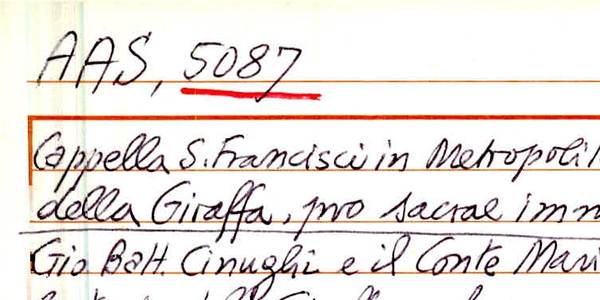 AAS, 5087
Cappella S. Francisci in Metropolit
della Giraffa, pro sacrae imm
Gio Batt. Cinughi e il Conte Mari